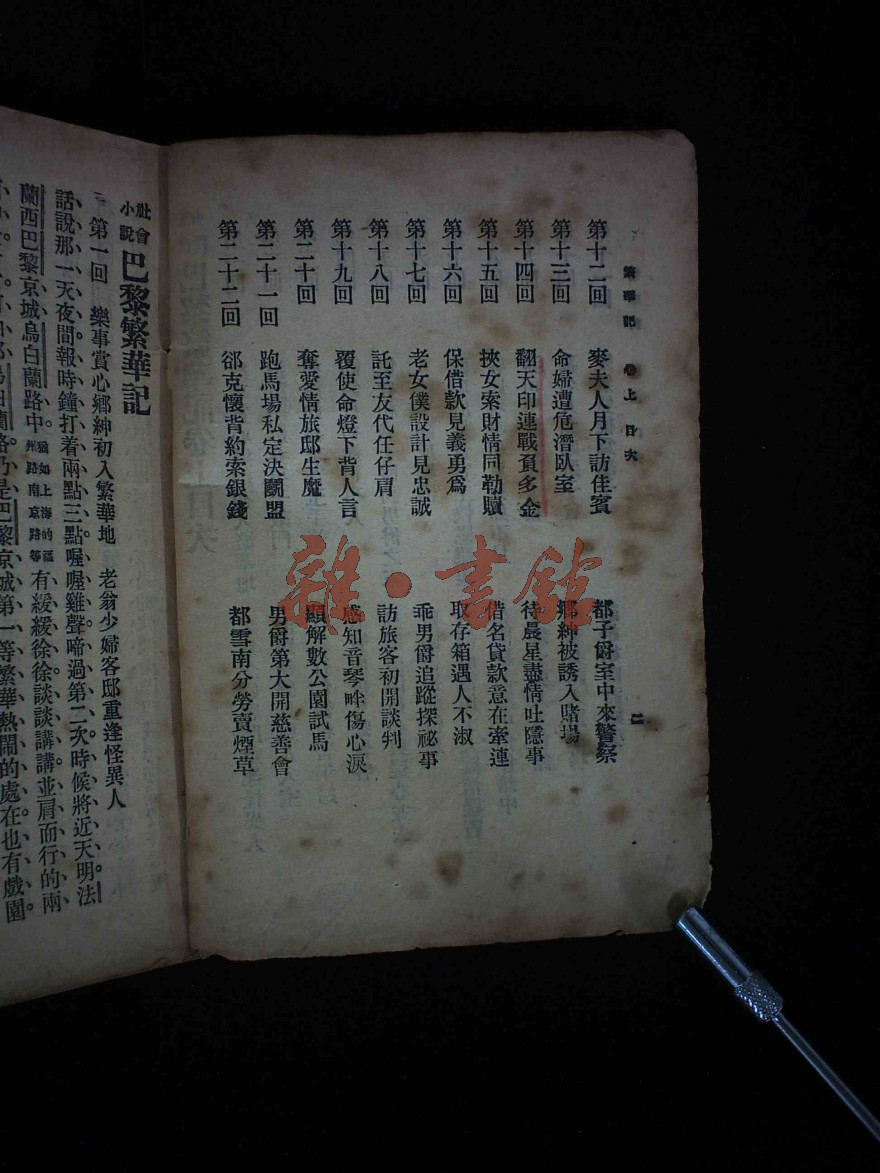 繁華記 卷上 目次 二
第十二回 麥夫人月下訪佳賓 都子爵室中來警察
第十三回 命婦遭危潛臥室 鄉紳被誘入賭場
第十四回 翻天印連戰負多金 待晨星盡情吐隱事
第十五回 挾女索財情同勒贖 借名貸款意在牽連
第十六回 保借款見義勇爲 取存箱遇人不淑
第十七回 老女僕設計見忠誠 乖男爵追蹤探祕事
第十八回 託至友代任仔肩 訪旅客初開談判
第十九回 覆使命燈下背人言 感知音琴畔傷心淚
第二十回 奪愛情旅邸生魔 顯解數公園試馬
第二十一回 跑馬場私定決鬭盟 男爵第大開慈善會
第二十二回 郤克懷背約索銀錢 都雪南分勞賣煙草
雜·書館
社會小說 巴黎繁華記
第一回 樂事賞心鄉紳初入繁華地 老翁少婦客邸重逢怪異人
話說那一天夜間報時鐘打着兩點三點喔喔雞聲啼過第二次時候將近天明法
蘭西巴黎京城烏白蘭路中 猶如上海的福州路南京路等 有緩緩徐徐談談講講並肩而行的兩
烏白蘭路乃是巴黎京城第一等繁華熱鬧的處在也有戲園